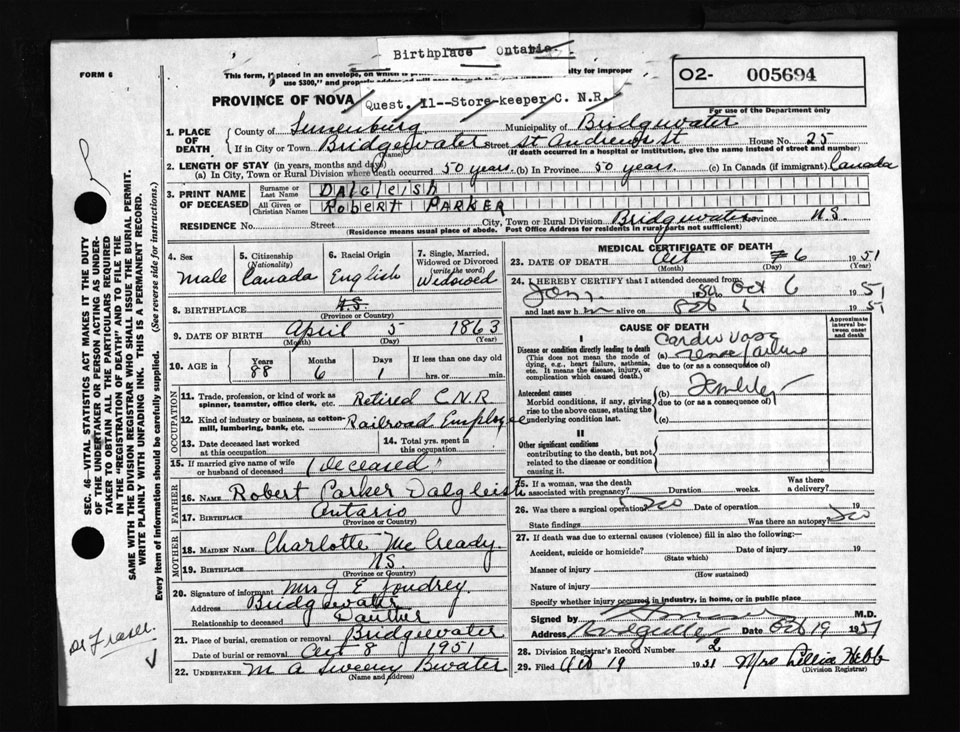 Birthplace Ontario
FORM 6
This form, if placed in an envelope, on which is alty for improper
use $300," and
O2- 005694
For use of the Department only
PROVINCE OF NOVA
Quest. 11--Store-keeper C. N.R.
1. PLACE OF DEATH
County of Lunenburg Municipality of Bridgewater
If in City or Town Bridgewater Street St Andrew St House No. 25
(Name) (If death occurred in a hospital or institution, give the name instead of street and number)
2. LENGTH OF STAY (in years, months and days)
(a) In City, Town or Rural Division where death occurred 50 years. (b) In Province 50 years. (c) In Canada (if immigrant) Canada
3. PRINT NAME OF DECEASED
Surname or Last Name DALGLEISH
All Given or Christian Names ROBERT PARKER
RESIDENCE No. Street City, Town or Rural Division Bridgewater Province N.S.
(Residence means usual place of abode. Post Office Address for residents in rural parts not sufficient)
4. Sex
Male
5. Citizenship (Nationality)
Canada
6. Racial Origin
English
7. Single, Married, Widowed or Divorced (write the word)
Widowed
8. BIRTHPLACE N.S.
(Province or Country)
9. DATE OF BIRTH April 5 1863
(Month) (Day) (Year)
10. AGE in Years Months Days If less than one day old
88 6 1 hrs. or min.
OCCUPATION
11. Trade, profession, or kind of work as spinner, teamster, office clerk, etc. Retired C.N.R
12. Kind of industry or business, as cotton-mill, lumbering, bank, etc. Railroad Employee
13. Date deceased last worked at this occupation
14. Total yrs. spent in this occupation
15. If married give name of wife or husband of deceased (Deceased)
FATHER
16. NAME Robert Parker Dalgleish
17. BIRTHPLACE Ontario
(Province or Country)
MOTHER
18. MAIDEN NAME Charlotte McCready
19. BIRTHPLACE N.S.
(Province or Country)
20. Signature of informant Mrs G E Joudrey
Address Bridgewater
Relationship to deceased Dauther
21. Place of burial, cremation or removal Bridgewater
Date of burial or removal Oct 8 1951
22. UNDERTAKER M A Sweeny Bwater
(Name and Address)
MEDICAL CERTIFICATE OF DEATH
23. DATE OF DEATH Oct 6 1951
(Month) (Day) (Year)
24. I HEREBY CERTIFY that I attended deceased from:
Jan. Oct 6 1951
and last saw h im alive on 1951
CAUSE OF DEATH
Approximate interval between onset and death
I
Disease or condition directly leading to death
(This does not mean the mode of dying, e.g., heart failure, asthenia, etc. It means the disease, injury, or complication which caused death.)
(a) Cardio Vasc
renal failure
due to (or as a consequence of)
Antecedent causes
Morbid conditions, if any, giving rise to the above cause, stating the underlying condition last.
(b)
due to (or as a consequence of)
(c)
II
Other significant conditions contributing to the death, but not related to the disease or condition causing it.
25. If a woman, was the death associated with pregnancy? Duration weeks. Was there a delivery?
26. Was there a surgical operation? No Date of operation 19
State findings Was there an autopsy? No
27. If death was due to external causes (violence) fill in also the following:—
Accident, suicide or homicide? Date of injury 19
(State which)
Manner of injury
(How sustained)
Nature of injury
Specify whether injury occurred in industry, in home, or in public place
Signed by M.D.
Address Bridgewater Date Oct 19 1951
28. Division Registrar's Record Number 2
29. Filed Oct 19 1951 Mrs Lillian Webb
(Division Registrar)
SEC. 46—VITAL STATISTICS ACT MAKES IT THE DUTY
OF THE UNDERTAKER OR PERSON ACTING AS UNDER-
TAKER TO OBTAIN ALL THE PARTICULARS REQUIRED
IN THE "REGISTRATION OF DEATH" AND TO FILE THE
SAME WITH THE DIVISION REGISTRAR WHO SHALL ISSUE THE BURIAL PERMIT.
WRITE PLAINLY WITH UNFADING INK. THIS IS A PERMANENT RECORD.
Every item of information should be carefully supplied. (See reverse side for instructions.)
Dr Fraser